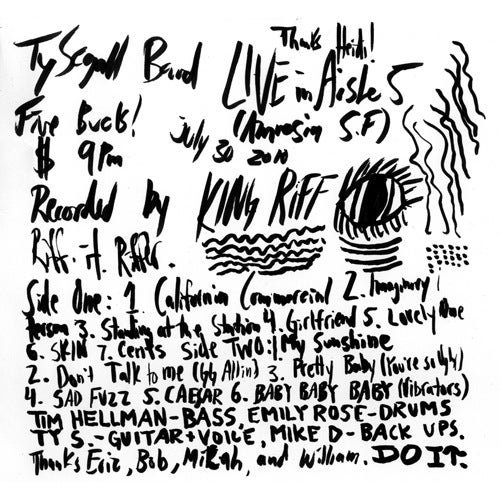 Thanks Heidi!
Ty Segall Band LIVE in Aisle 5
Five Bucks! (Amnesia S.F)
$ 9 Pm July 30 2010
Recorded by KING RIFF
Riff. it. Riffer.
Side One: 1. California Commercial 2. Imaginary
Person 3. Standing at the Station 4. Girlfriend 5. Lovely One
6. SKIN 7. Cents Side TWO: 1 My Sunshine
2. Don't Talk to me (GG Allin) 3. Pretty Baby (You're so Ugly)
4. SAD FUZZ 5. CAESAR 6. BABY BABY BABY (Vibrators)
TIM HELLMAN-BASS, EMILY ROSE-DRUMS
TY S.-GUITAR+VOICE, MIKE D-BACK UPS.
Thanks Eric, Bob, Mikah, and William. DO IT.